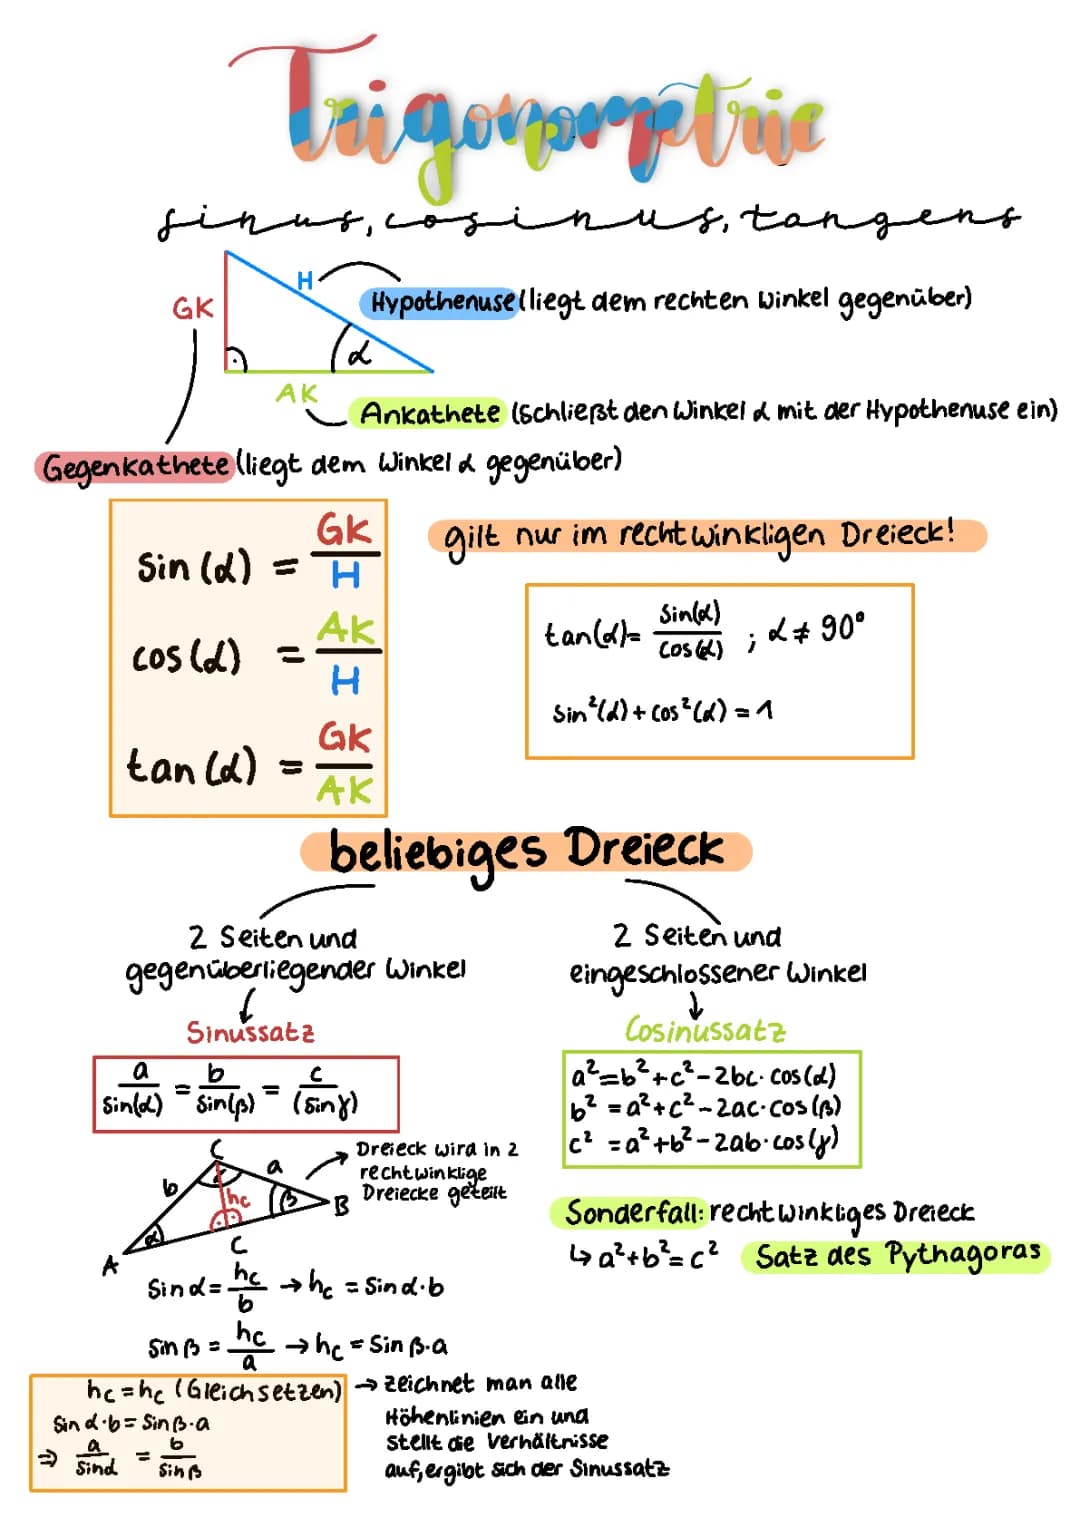 Trigonometrie
sinus, cosinus, tangens
H
GK
Hypothenuse (liegt dem rechten Winkel gegenüber)
α
AK
Ankathete (schließt den Winkel α mit der Hypothenuse ein)
Gegenkathete (liegt dem Winkel α gegenüber)
sin(α) = GK/H
cos(α) = AK/H
tan(α) = GK/AK
gilt nur im rechtwinkligen Dreieck!
tan(α) = sin(α)/cos(α) ; α ≠ 90°
sin²(α) + cos²(α) = 1
beliebiges Dreieck
2 Seiten und
gegenüberliegender Winkel
Sinussatz
a/sin(α) = b/sin(β) = c/(sinγ)
C
a
b
hc
β
B
α
A
c
Dreieck wird in 2
rechtwinklige
Dreiecke geteilt
sin α = hc/b → hc = sin α · b
sin β = hc/a → hc = sin β · a
hc = hc (Gleichsetzen)
sin α · b = sin β · a
⇒ a/sin α = b/sin β
→ zeichnet man alle
Höhenlinien ein und
stellt die Verhältnisse
auf, ergibt sich der Sinussatz
2 Seiten und
eingeschlossener Winkel
Cosinussatz
a² = b² + c² - 2bc · cos(α)
b² = a² + c² - 2ac · cos(β)
c² = a² + b² - 2ab · cos(γ)
Sonderfall: rechtwinkliges Dreieck
↳ a² + b² = c² Satz des Pythagoras